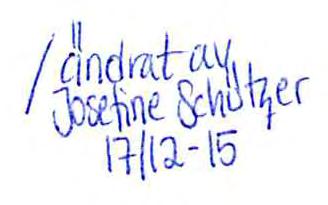 /ändrat av
Josefine Schützer
17/12-15